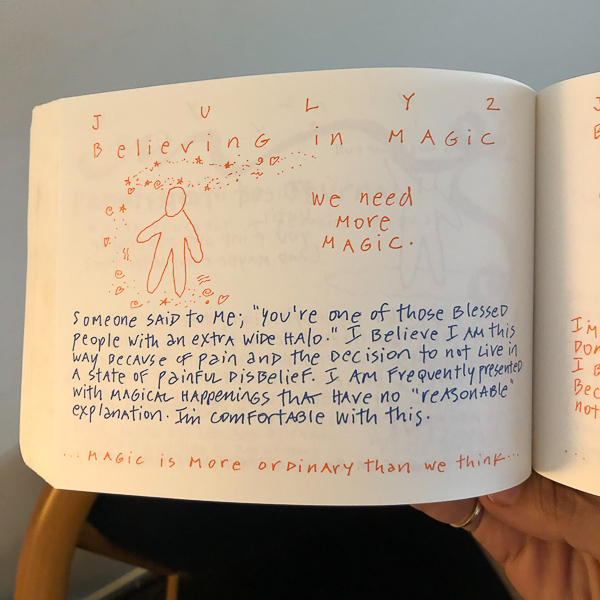 JULY 2
Believing in MAGIC
we need
MORE
MAGIC.
Someone SAID to Me; "you're one of those Blessed
people with an extra wide HALO." I Believe I AM this
way Because of pain and the Decision to not Live in
A state of painful DisBelief. I AM Frequently presented
with MAGICAL HAppenings that Have no "reASONABLe"
explanation. I'm comfortABLe with this.
... MAGIC is More orDinary than we think...
J
B
I'm
Don
I B
Bec
not
...